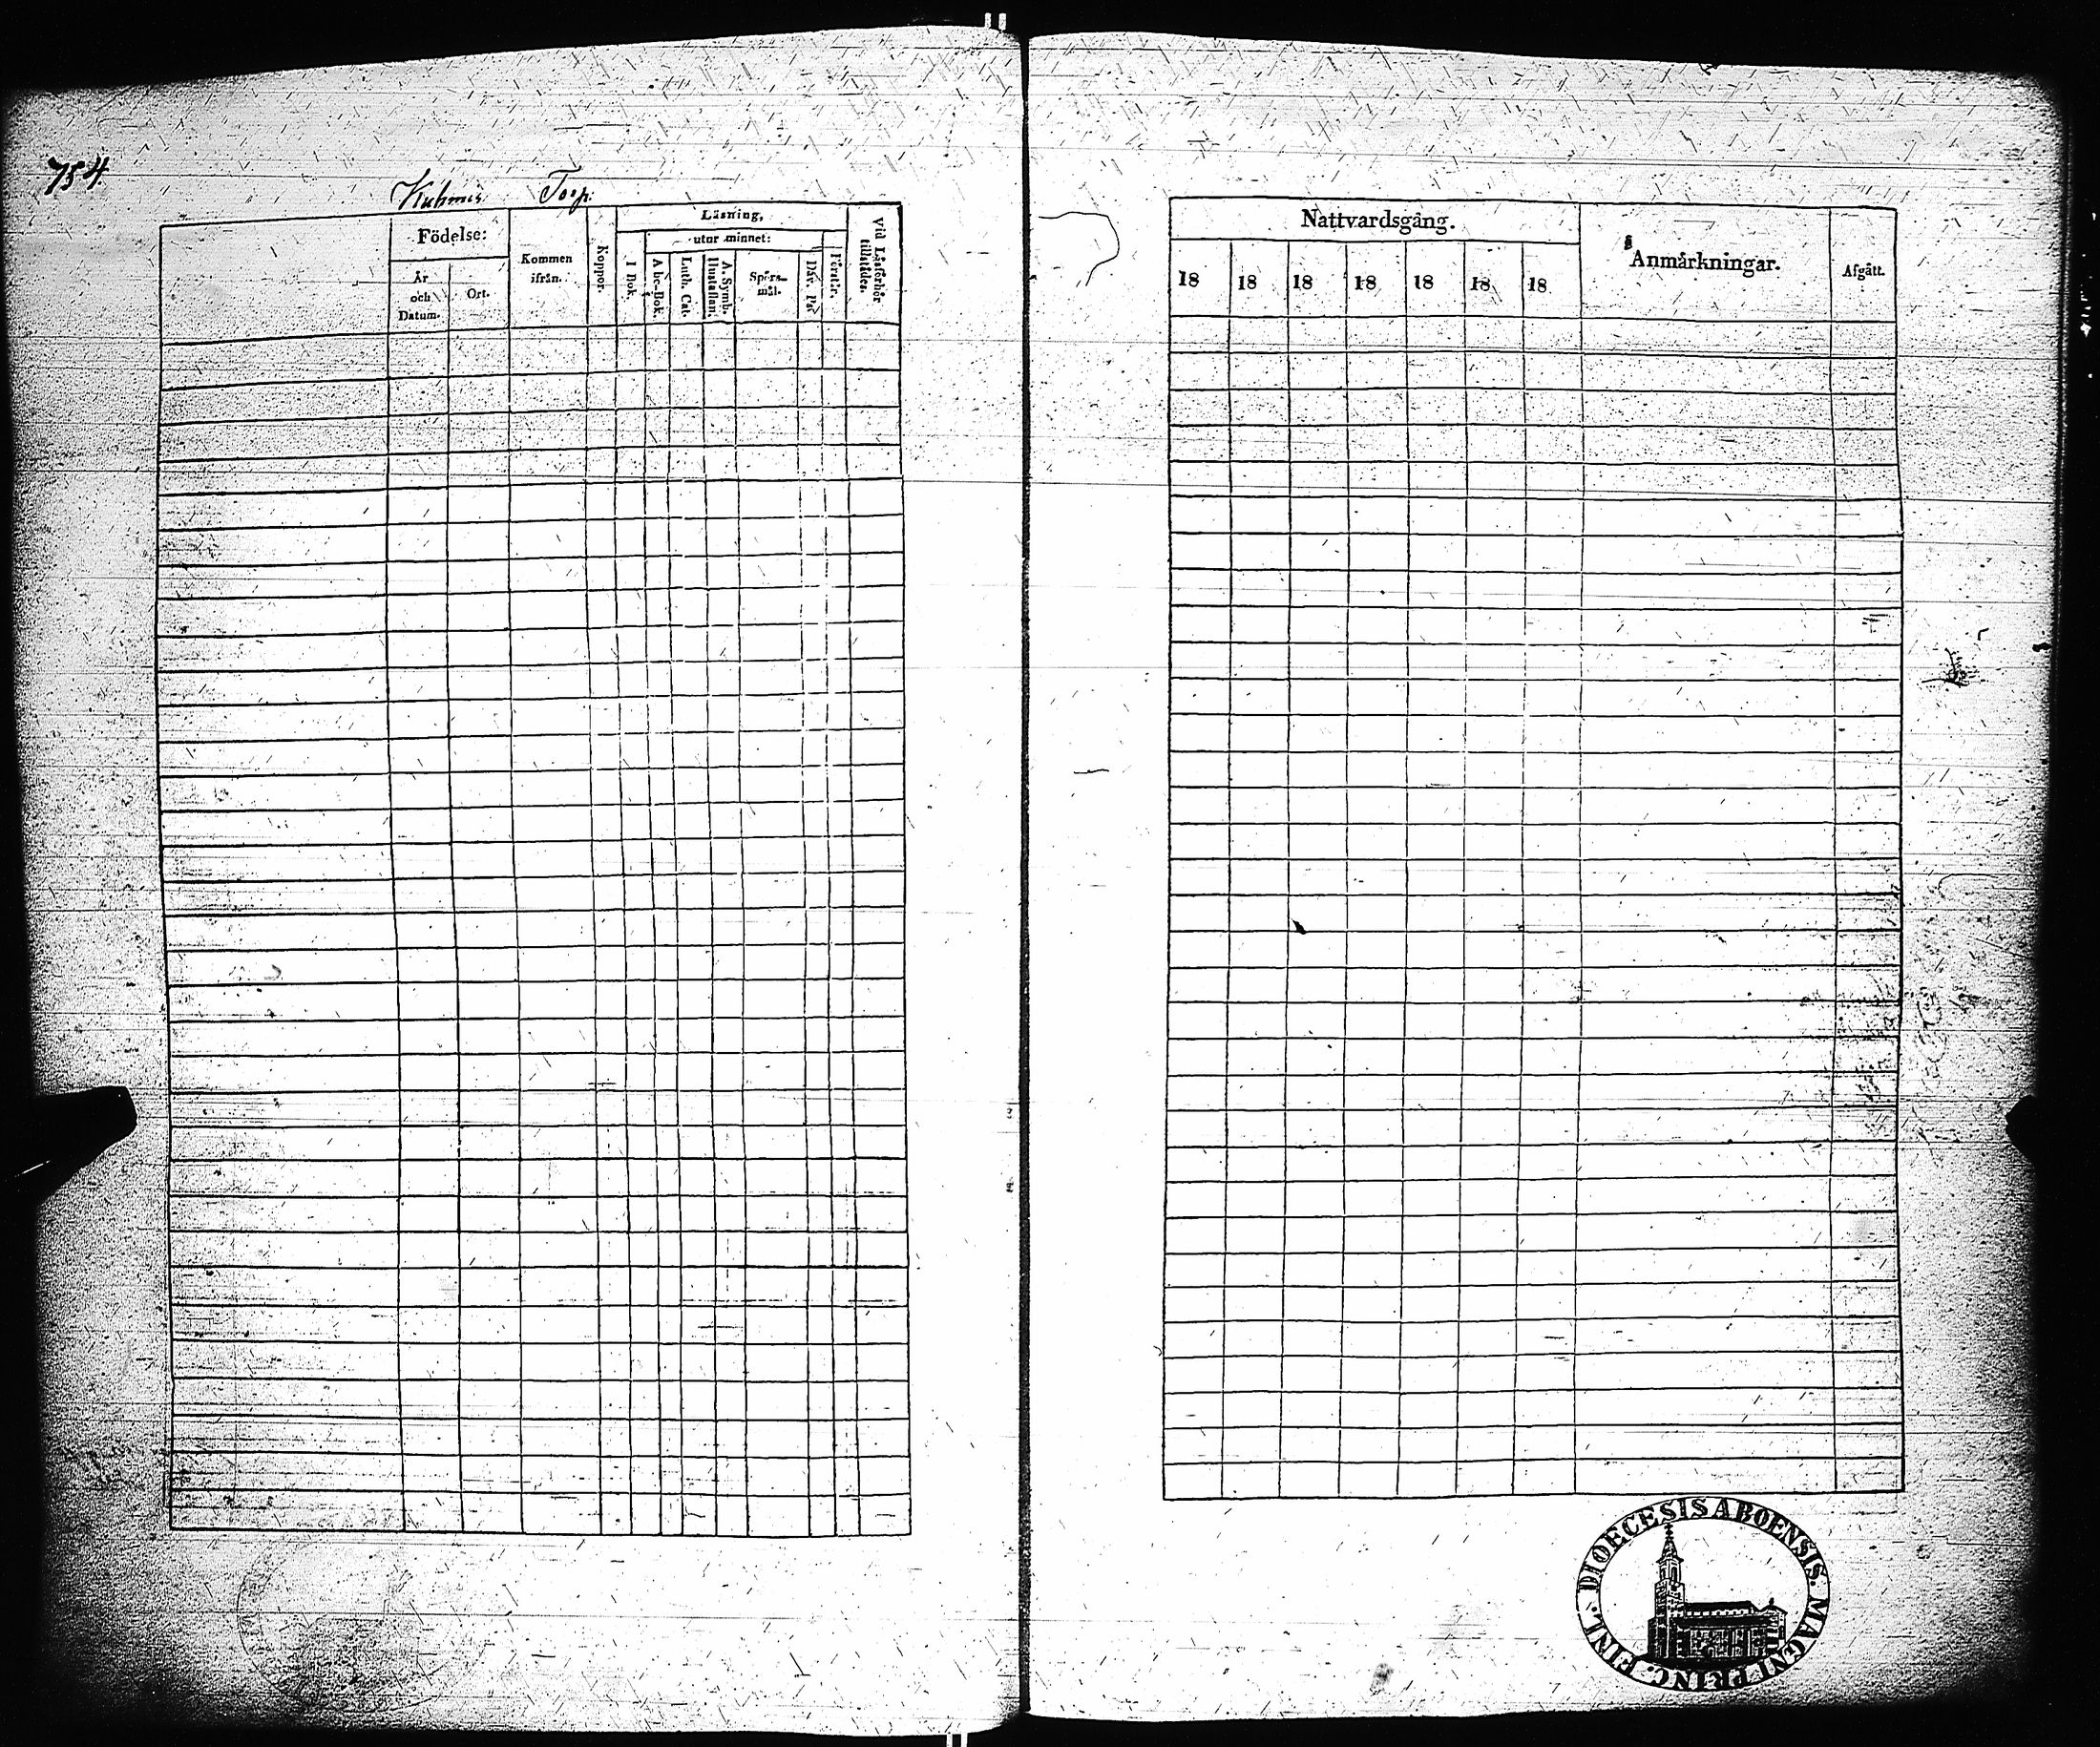 754
Kuhmis Torp.
Födelse:
År och Datum.
Ort.
Kommen ifrån.
Koppor.
Läsning,
utur minnet:
I Bok.
Abc-Bok.
Luth. Cat.
A. Symb. Hustaflan.
Spörs-mål.
Dav. Ps.
Förstår.
Vid Läsförhör tillstädes.
Nattvardsgång.
18 18 18 18 18 18 18
Anmärkningar.
Afgått.
DIOECESIS ABOENSIS. MAGNI PRINC. FINL.